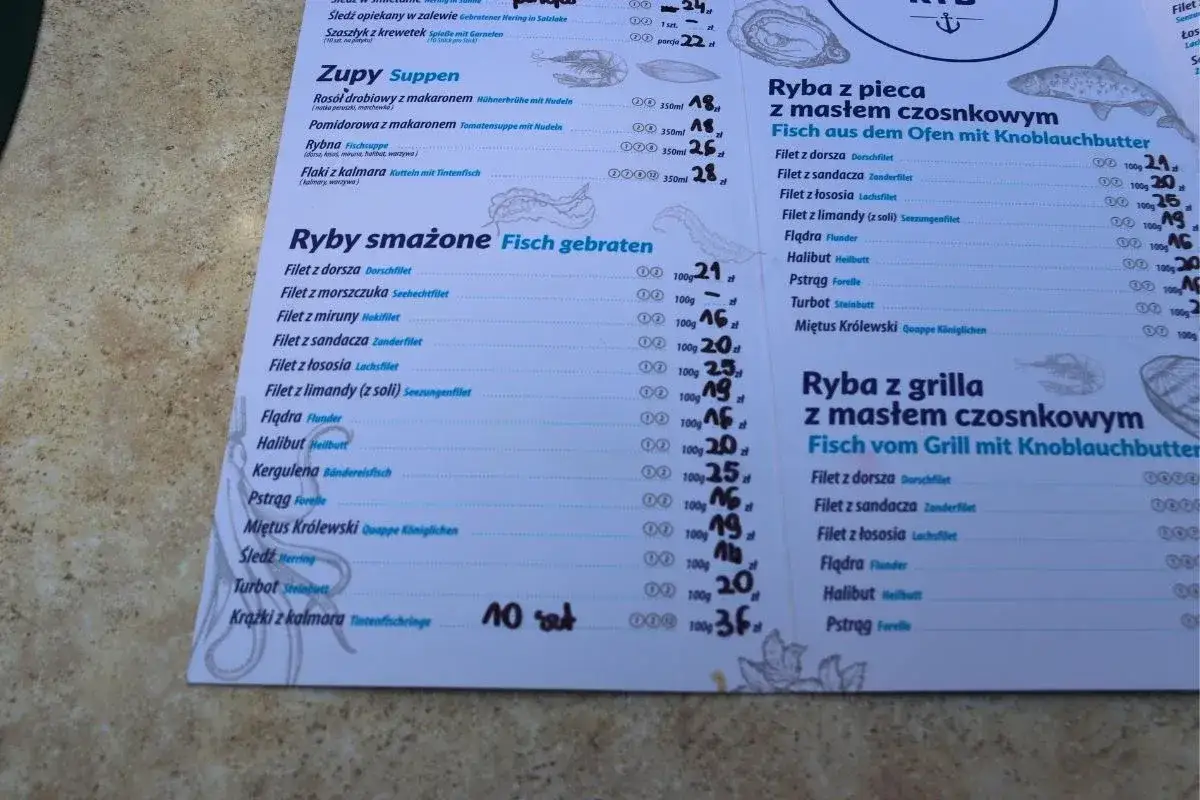 24 zł
Śledź opiekany w zalewie Gebratener Hering in Salzlake 1 szt. – zł
Szaszłyk z krewetek Spieße mit Garnelen porcja 22 zł
(10 szt. na patyku) (10 Stück pro Stick)
Zupy Suppen
Rosół drobiowy z makaronem Hühnerbrühe mit Nudeln 350ml 18 zł
(natka pietruszki, marchewka)
Pomidorowa z makaronem Tomatensuppe mit Nudeln 350ml 18
Rybna Fischsuppe 350ml 26 zł
(dorsz, łosoś, miruna, halibut, warzywa)
Flaki z kalmara Kutteln mit Tintenfisch 350ml 28 zł
(kalmary, warzywa)
Ryby smażone Fisch gebraten
Filet z dorsza Dorschfilet 100g 21 zł
Filet z morszczuka Seehechtfilet 100g – zł
Filet z miruny Hokifilet 100g 16 zł
Filet z sandacza Zanderfilet 100g 20 zł
Filet z łososia Lachsfilet 100g 25 zł
Filet z limandy (z soli) Seezungenfilet 100g 19 zł
Flądra Flunder 100g 16 zł
Halibut Heilbutt 100g 20 zł
Kergulena Bändereisfisch 100g 25 zł
Pstrąg Forelle 100g 16 zł
Miętus Królewski Quappe Königlichen 100g 19 zł
Śledź Herring 100g zł
Turbot Steinbutt 100g 20 zł
Krążki z kalmara Tintenfischringe 10 szt 100g 36 zł
RYB
Ryba z pieca
z masłem czosnkowym
Fisch aus dem Ofen mit Knoblauchbutter
Filet z dorsza Dorschfilet 100g 21 zł
Filet z sandacza Zanderfilet 100g 20 zł
Filet z łososia Lachsfilet 100g 25
Filet z limandy (z soli) Seezungenfilet 100g 19
Flądra Flunder 100g 16
Halibut Heilbutt 100g 20
Pstrąg Forelle 100g 16
Turbot Steinbutt 100g
Miętus Królewski Quappe Königlichen 100g
Ryba z grilla
z masłem czosnkowym
Fisch vom Grill mit Knoblauchbutter
Filet z dorsza Dorschfilet
Filet z sandacza Zanderfilet
Filet z łososia Lachsfilet
Flądra Flunder
Halibut Heilbutt
Pstrąg Forelle
Filet